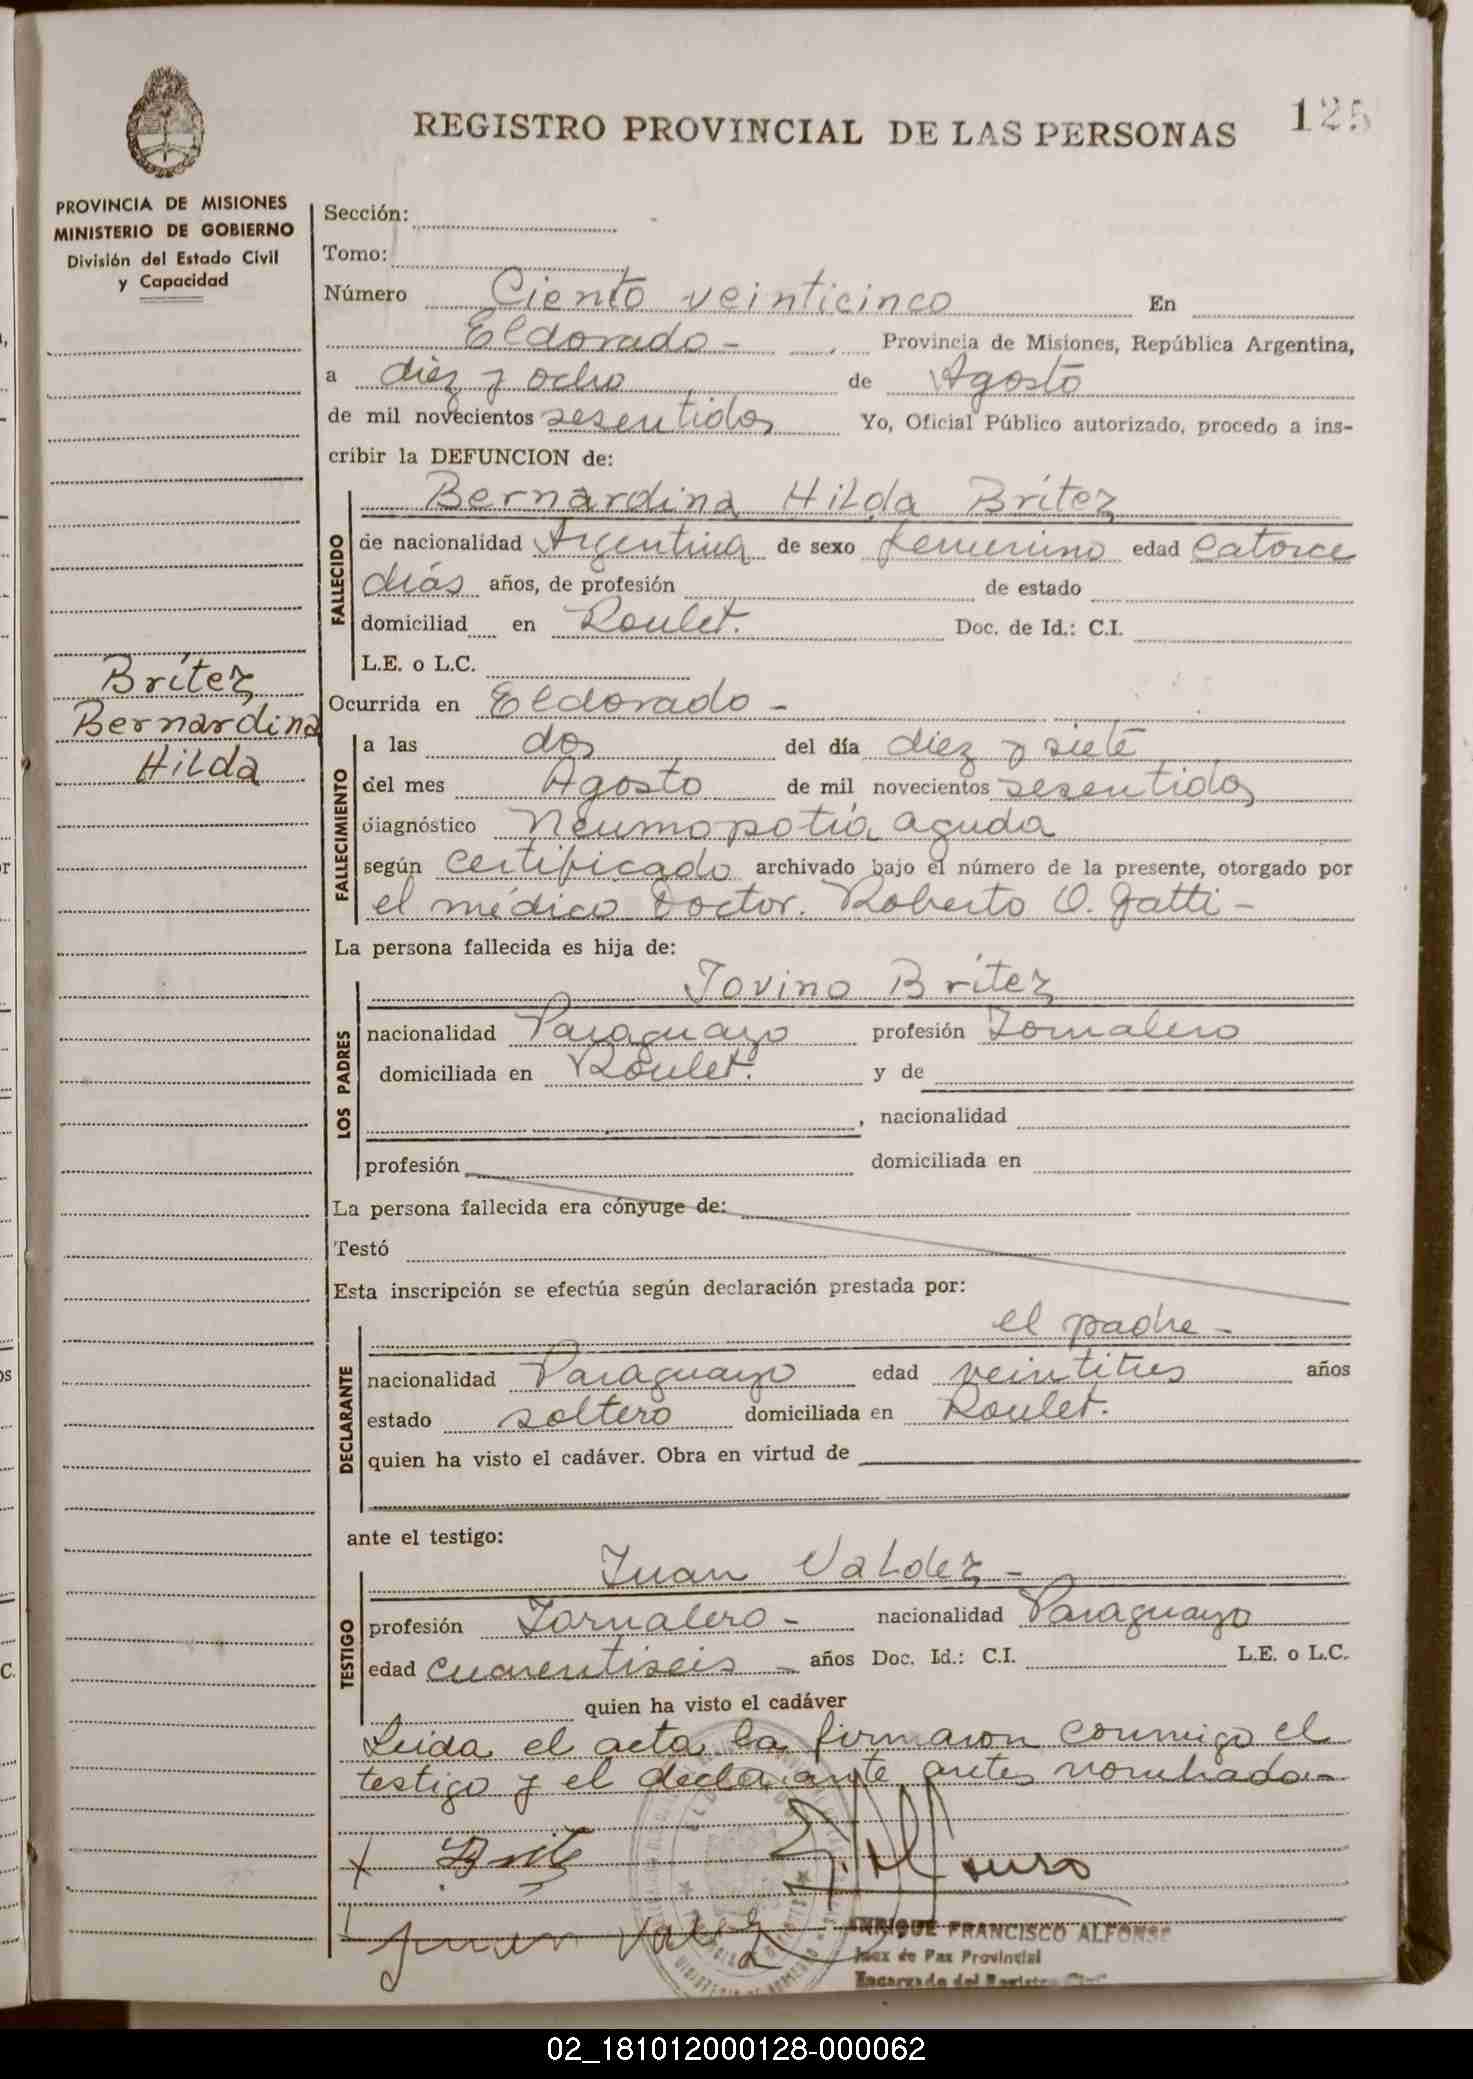 REGISTRO PROVINCIAL DE LAS PERSONAS
125
PROVINCIA DE MISIONES
MINISTERIO DE GOBIERNO
División del Estado Civil
y Capacidad
Brítez
Bernardina
Hilda
Sección:
Tomo:
Número Ciento veinticinco En
Eldorado - Provincia de Misiones, República Argentina,
a diez y ocho de Agosto
de mil novecientos sesentidos Yo, Oficial Público autorizado, procedo a ins-
cribir la DEFUNCION de:
FALLECIDO
Bernardina Hilda Brítez
de nacionalidad Argentina de sexo femenino edad catorce
días años, de profesión de estado
domiciliad en Roulet. Doc. de Id.: C.I.
L.E. o L.C.
Ocurrida en Eldorado -
FALLECIMIENTO
a las dos del día diez y siete
del mes Agosto de mil novecientos sesentidos
diagnóstico Neumopotía aguda
según certificado archivado bajo el número de la presente, otorgado por
el médico Doctor. Roberto O. Gatti -
La persona fallecida es hija de:
LOS PADRES
Jovino Brítez
nacionalidad Paraguayo profesión Jornalero
domiciliada en Roulet. y de
, nacionalidad
profesión domiciliada en
La persona fallecida era cónyuge de:
Testó
Esta inscripción se efectúa según declaración prestada por:
DECLARANTE
el padre -
nacionalidad Paraguayo edad veintitres años
estado soltero domiciliada en Roulet.
quien ha visto el cadáver. Obra en virtud de
ante el testigo:
TESTIGO
Juan Valdez -
profesión Jornalero - nacionalidad Paraguayo
edad cuarentiseis - años Doc. Id.: C.I. L.E. o L.C.
quien ha visto el cadáver
Leída el acta la firmaron conmigo el
testigo y el declarante antes nombrado -
ENRIQUE FRANCISCO ALFONSO
Juez de Paz Provincial
Encargado del Registro Civil
02_181012000128-000062